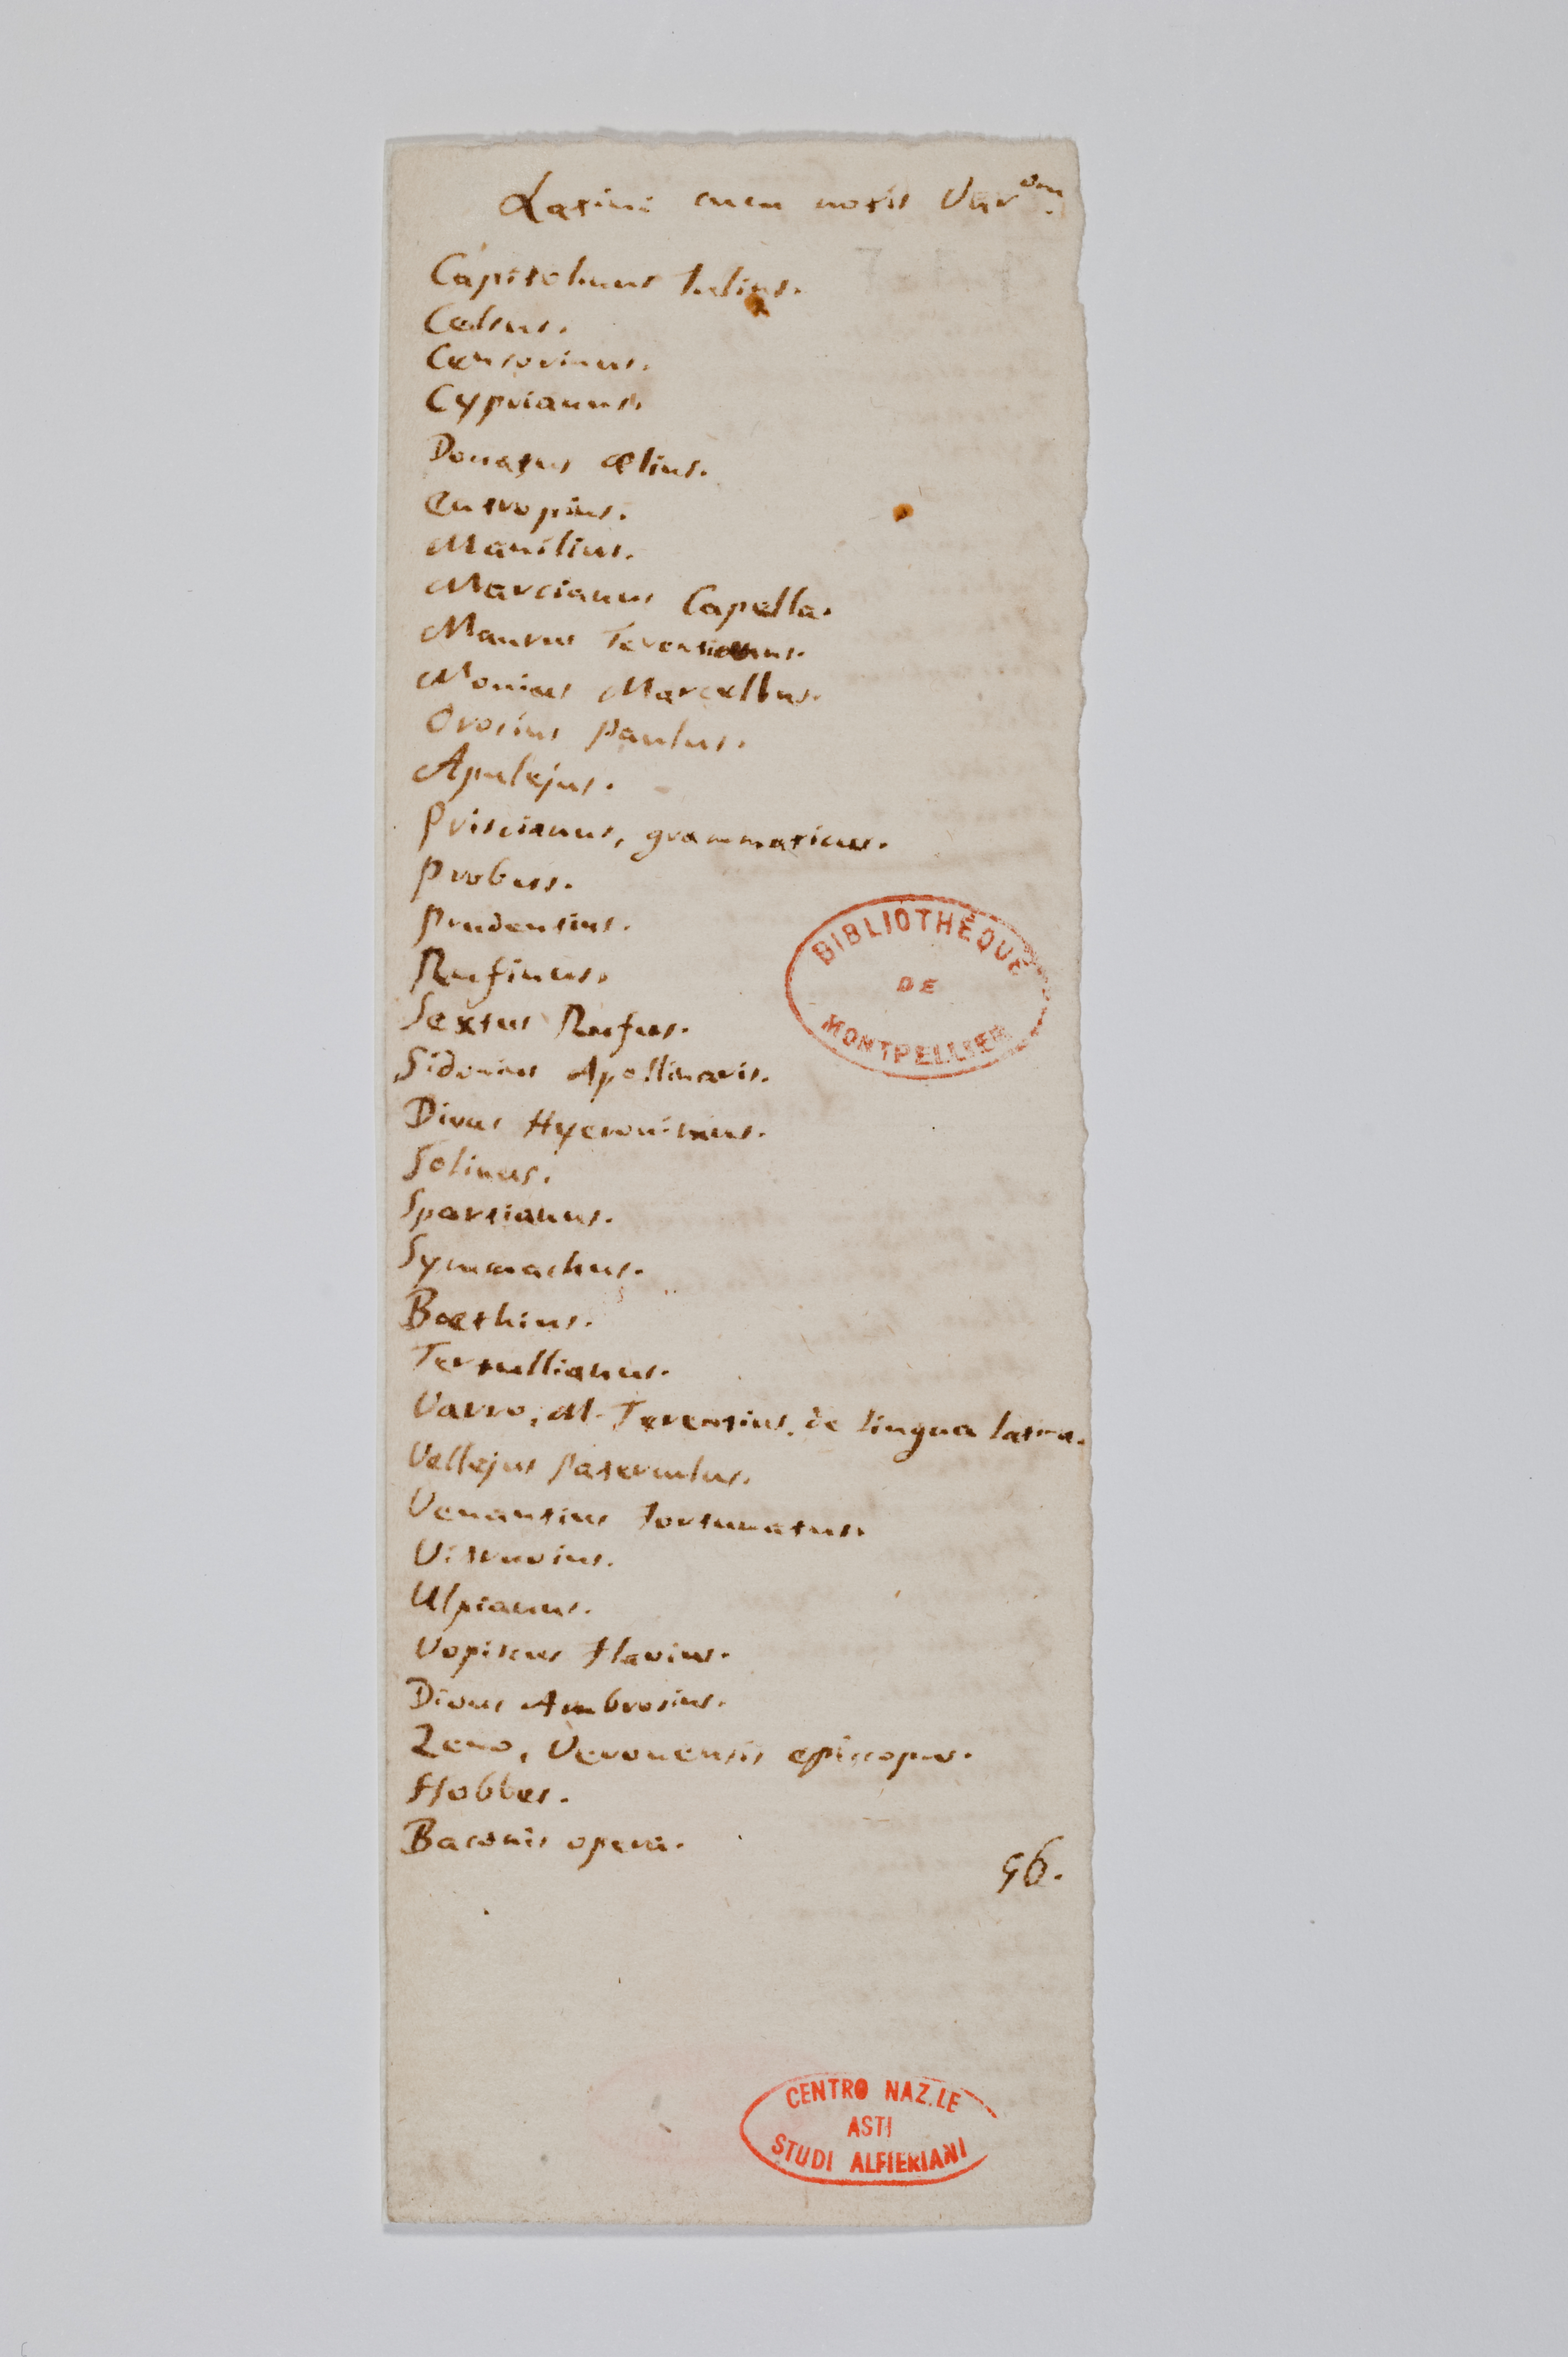 Latini cum notis Var.um
Capitolinus Julius.
Celsus.
Censorinus.
Cyprianus.
Donatus Ælius.
Eutropius.
Manilius.
Marcianus Capella.
Maurus Terentianus.
Nonius Marcellus.
Orosius Paulus.
Apulejus.
Priscianus, grammaticus.
Probus.
Prudentius.
Rufinus.
Sextus Rufus.
Sidonius Apollinaris.
Divus Hyeronimus.
Solinus.
Spartianus.
Symmachus.
Boethius.
Tertullianus.
Varro, M. Terentius. de lingua latina.
Vellejus Paterculus.
Venantius Fortunatus.
Vitruvius.
Ulpianus.
Vopiscus Flavius.
Divus Ambrosius.
Zeno, Veronensis episcopus.
Hobbes.
Baconis opera.
96.
BIBLIOTHÈQUE
DE
MONTPELLIER
CENTRO NAZ.LE
ASTI
STUDI ALFIERIANI